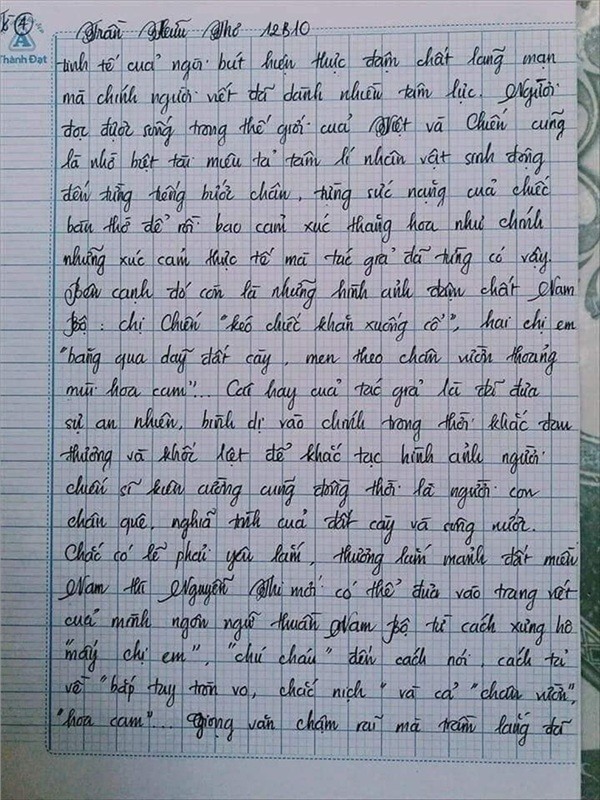 4
Thành Đạt
Trần Hữu Thơ 12B10
tinh tế của ngòi bút hiện thực đậm chất lãng mạn
mà chính người viết đã dành nhiều tâm lực. Người
đọc được sống trong thế giới của Việt và Chiến cũng
là nhờ biệt tài miêu tả tâm lí nhân vật sinh động
đến từng tiếng bước chân, từng sức nặng của chiếc
bàn thờ để rồi bao cảm xúc thăng hoa như chính
những xúc cảm thực tế mà tác giả đã từng có vậy.
Bên cạnh đó còn là những hình ảnh đậm chất Nam
Bộ: chị Chiến "kéo chiếc khăn xuống cổ", hai chị em
"băng qua dãy đất cày, men theo chân vườn thoảng
mùi hoa cam"... Cái hay của tác giả là đã đưa
sự an nhiên, bình dị vào chính trong thời khắc đau
thương và khốc liệt để khắc tạc hình ảnh người
chiến sĩ kiên cường cũng đồng thời là người con
chân quê, nghĩa tình của đất cày và sông nước.
Chắc có lẽ phải yêu lắm, thương lắm mảnh đất miền
Nam thì Nguyễn Thi mới có thể đưa vào trang viết
của mình ngôn ngữ thuần Nam Bộ từ cách xưng hô
"mấy chị em", "chú cháu" đến cách nói, cách tả
về "bắp tay tròn vo, chắc nịch" và cả "chân vườn",
"hoa cam"... Giọng văn chậm rãi mà trầm lắng đã